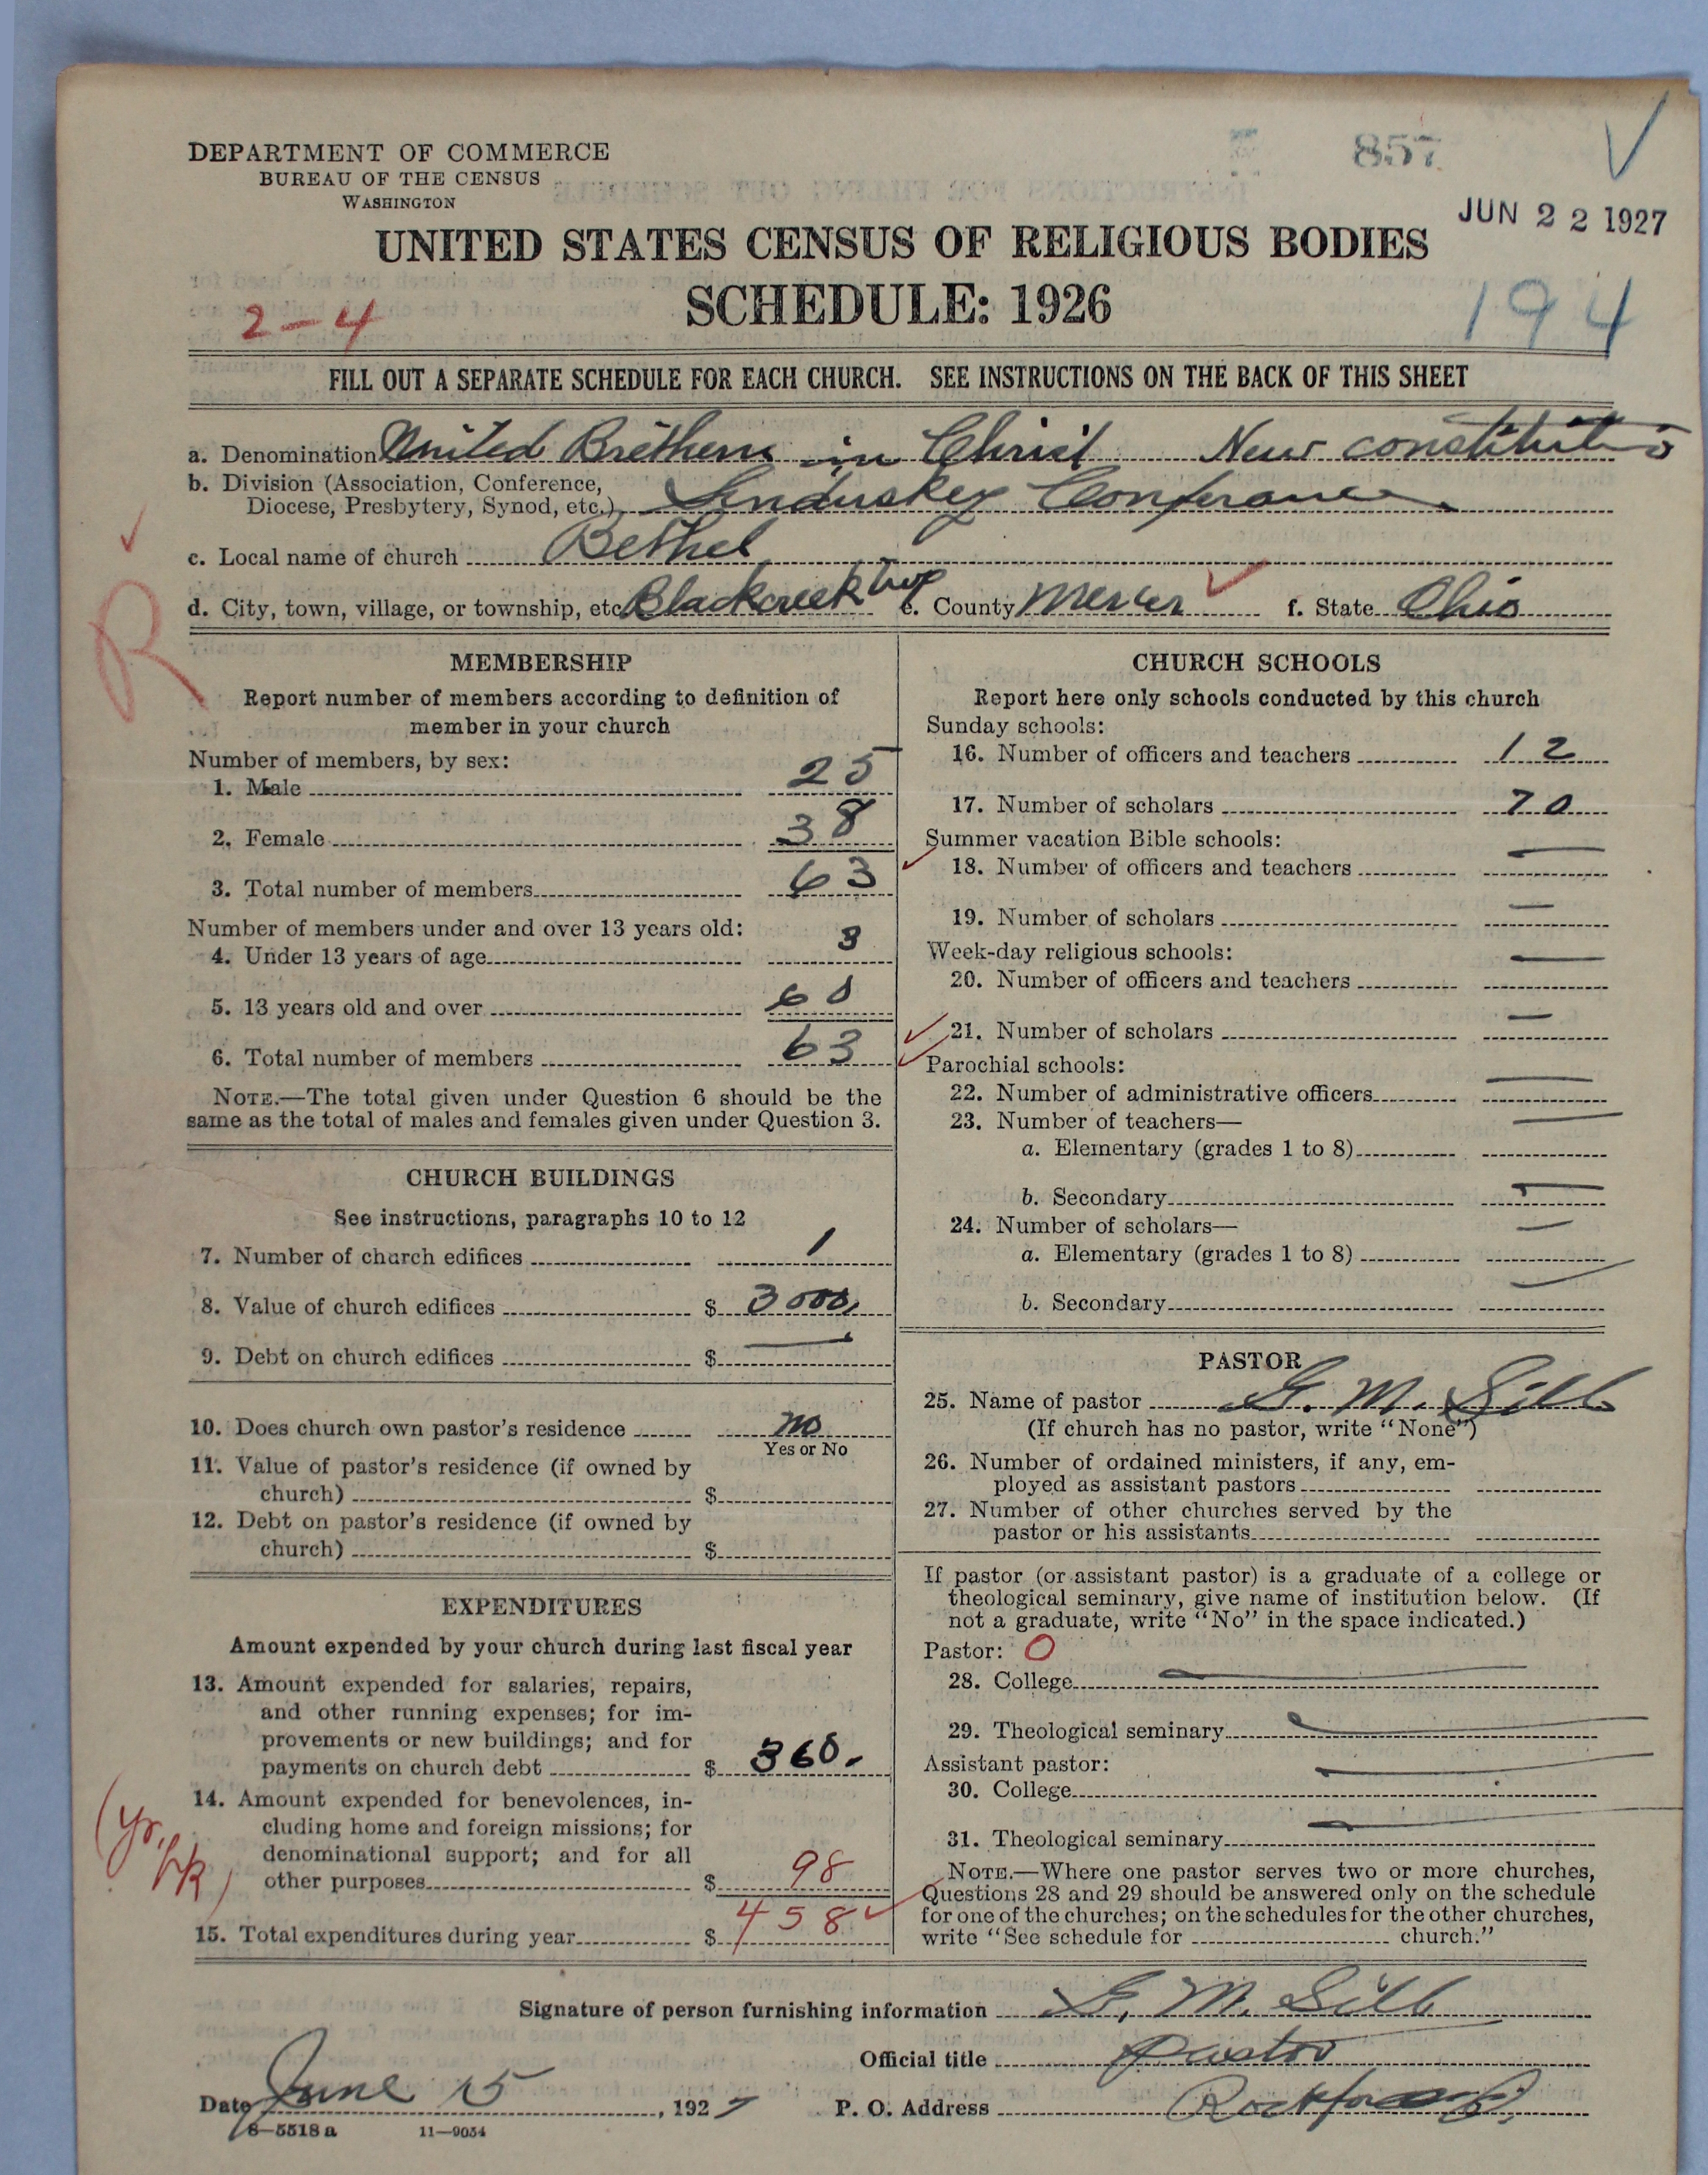 857
DEPARTMENT OF COMMERCE
BUREAU OF THE CENSUS
WASHINGTON
JUN 22 1927
UNITED STATES CENSUS OF RELIGIOUS BODIES
SCHEDULE: 1926
2-4
194
FILL OUT A SEPARATE SCHEDULE FOR EACH CHURCH. SEE INSTRUCTIONS ON THE BACK OF THIS SHEET
a. Denomination United Brethern in Christ New constitutio
b. Division (Association, Conference,
Diocese, Presbytery, Synod, etc.) Sanduskey Conferance
c. Local name of church Bethel
d. City, town, village, or township, etc. Blackcreek twp e. County Mercer f. State Ohio
R
MEMBERSHIP
Report number of members according to definition of
member in your church
Number of members, by sex:
1. Male 25
2. Female 38
3. Total number of members 63
Number of members under and over 13 years old:
4. Under 13 years of age 3
5. 13 years old and over 60
6. Total number of members 63
NOTE.—The total given under Question 6 should be the
same as the total of males and females given under Question 3.
CHURCH BUILDINGS
See instructions, paragraphs 10 to 12
7. Number of church edifices 1
8. Value of church edifices $ 3000,
9. Debt on church edifices $ —
10. Does church own pastor's residence no
Yes or No
11. Value of pastor's residence (if owned by
church) $
12. Debt on pastor's residence (if owned by
church) $
EXPENDITURES
Amount expended by your church during last fiscal year
13. Amount expended for salaries, repairs,
and other running expenses; for im-
provements or new buildings; and for
payments on church debt $ 360.
14. Amount expended for benevolences, in-
cluding home and foreign missions; for
denominational support; and for all
other purposes $ 98
(Yr. bk)
15. Total expenditures during year $ 458
CHURCH SCHOOLS
Report here only schools conducted by this church
Sunday schools:
16. Number of officers and teachers 12
17. Number of scholars 70
Summer vacation Bible schools:
18. Number of officers and teachers —
19. Number of scholars —
Week-day religious schools:
20. Number of officers and teachers —
21. Number of scholars —
Parochial schools:
22. Number of administrative officers —
23. Number of teachers—
a. Elementary (grades 1 to 8) —
b. Secondary —
24. Number of scholars—
a. Elementary (grades 1 to 8) —
b. Secondary —
PASTOR
25. Name of pastor G. M. Sills
(If church has no pastor, write "None")
26. Number of ordained ministers, if any, em-
ployed as assistant pastors
27. Number of other churches served by the
pastor or his assistants
If pastor (or assistant pastor) is a graduate of a college or
theological seminary, give name of institution below. (If
not a graduate, write "No" in the space indicated.)
Pastor: O
28. College —
29. Theological seminary —
Assistant pastor:
30. College —
31. Theological seminary —
NOTE.—Where one pastor serves two or more churches,
Questions 28 and 29 should be answered only on the schedule
for one of the churches; on the schedules for the other churches,
write "See schedule for church."
Signature of person furnishing information G. M. Sills
Official title pastor
Date June 15, 1927 P. O. Address Rockford O.
8—5518 a 11—9054